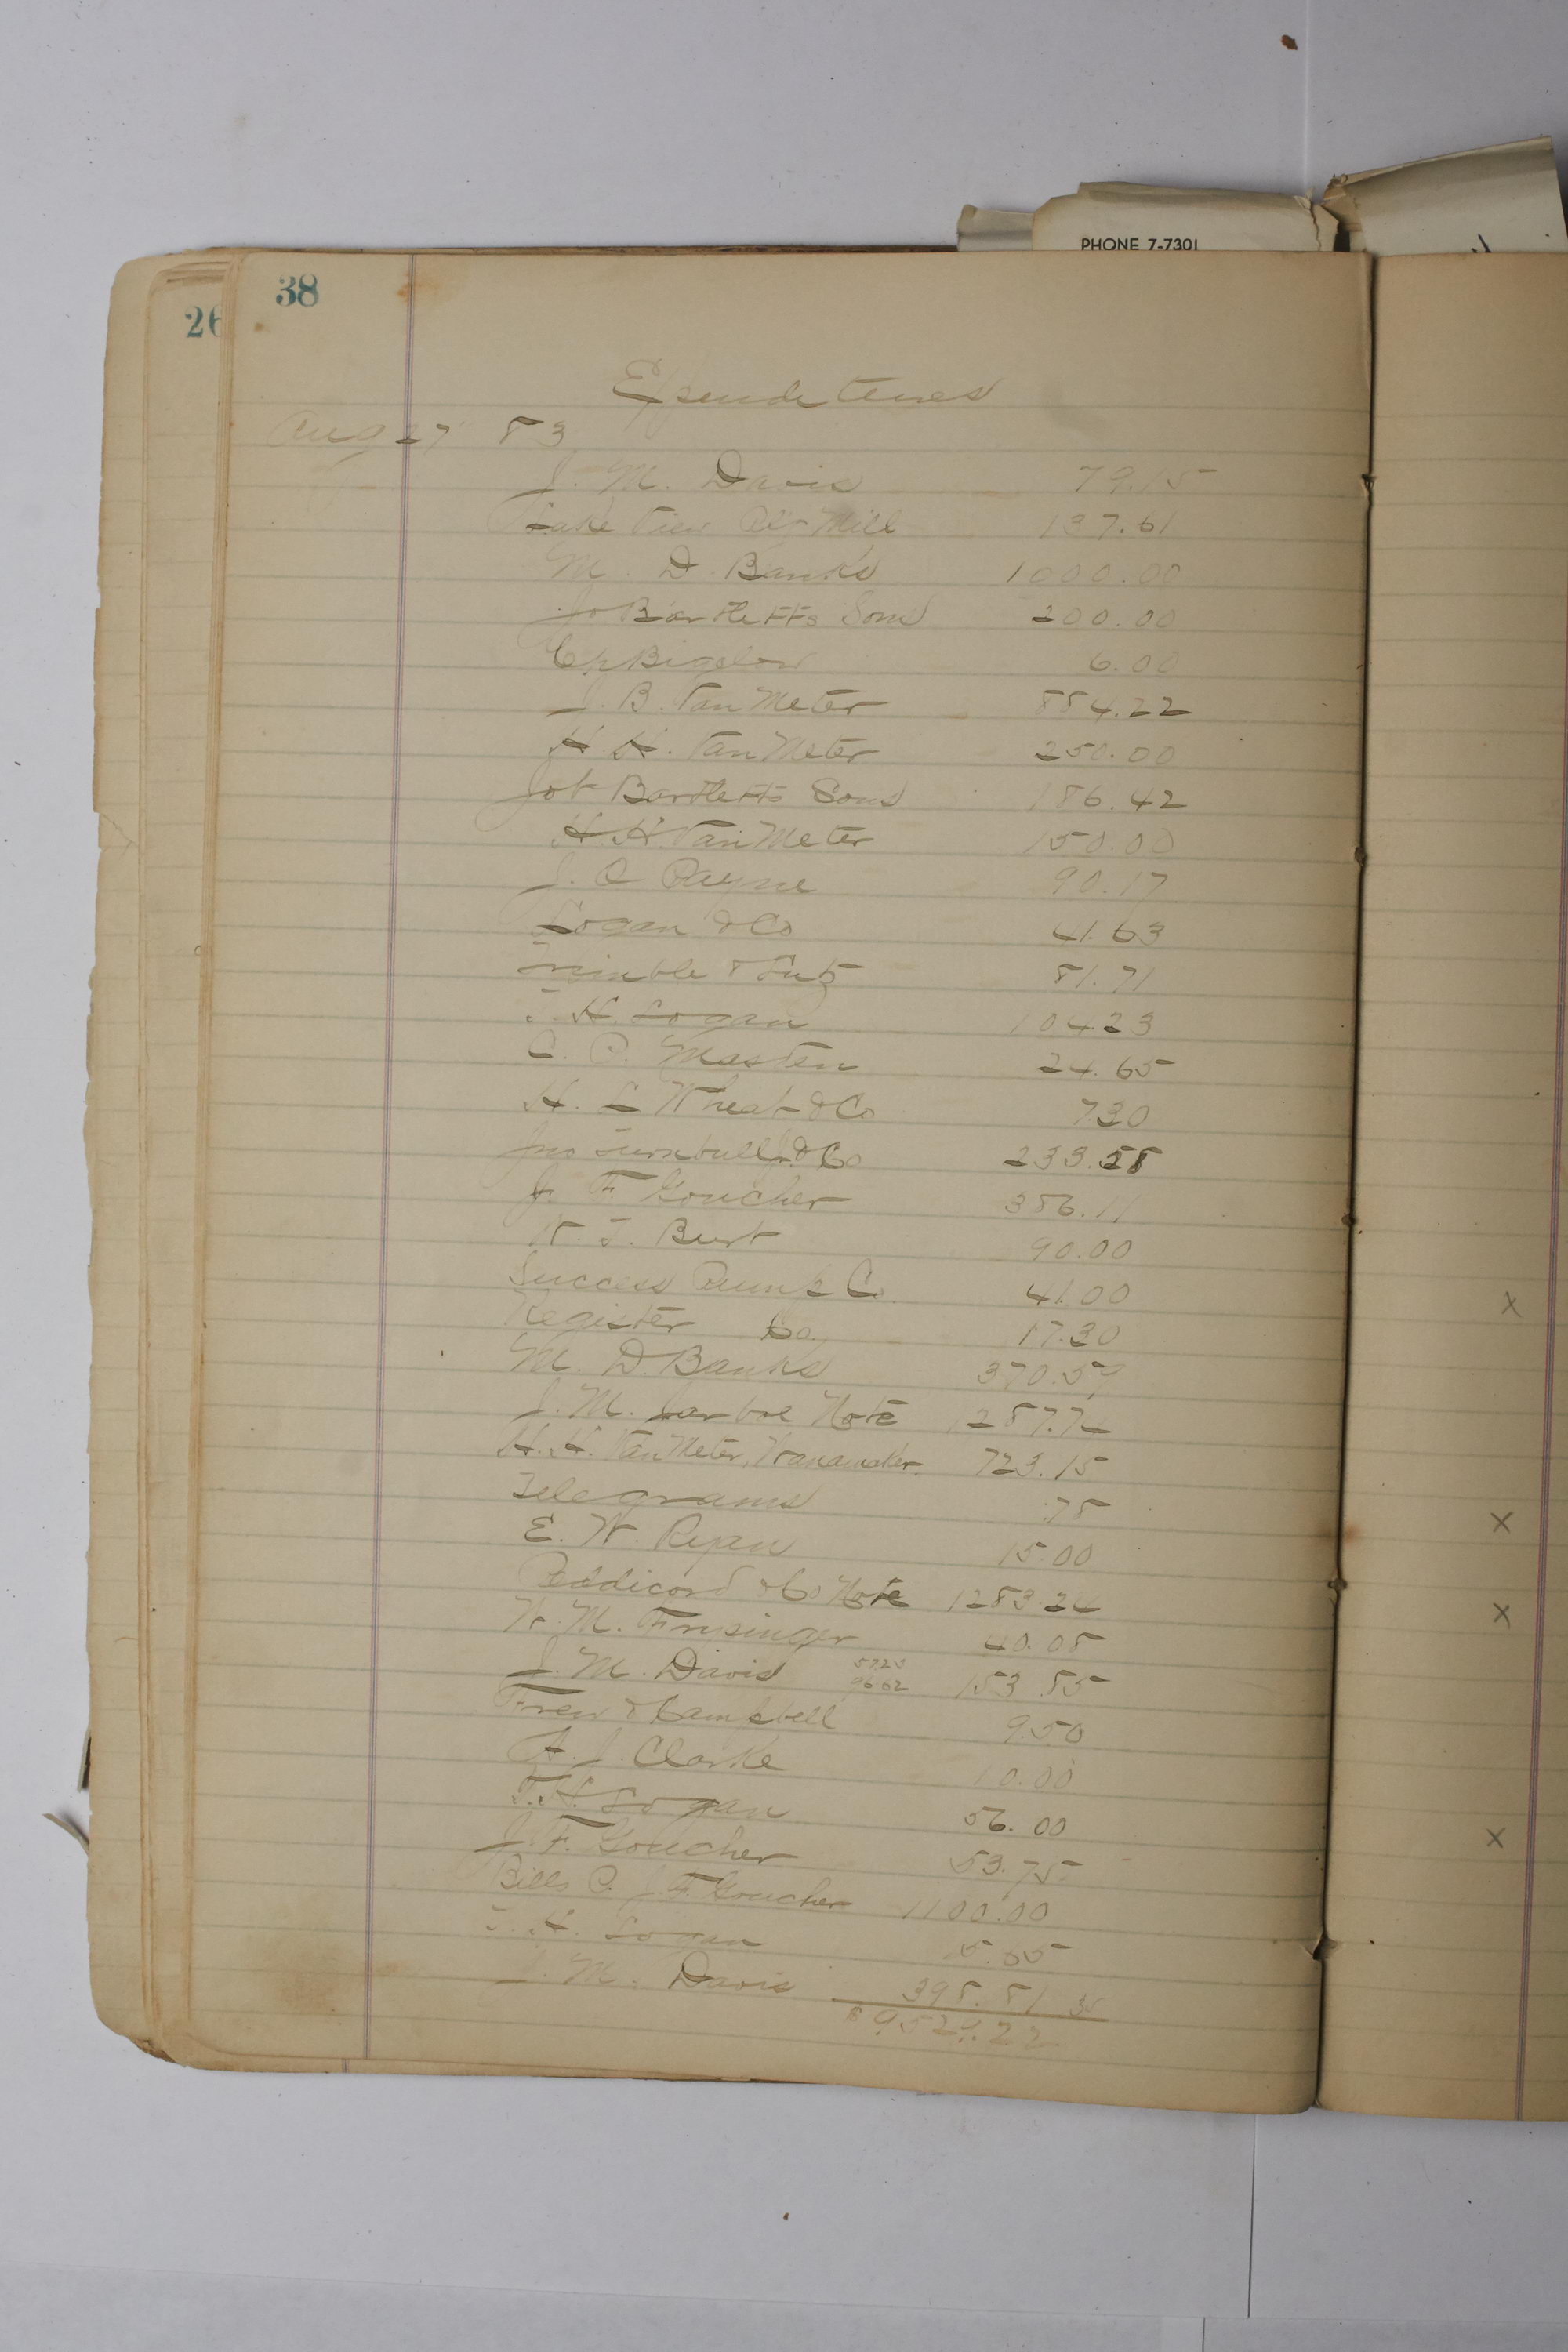 PHONE 7-7301
38
26
Expenditures
Aug 27 83
J. M. Davis 79.15
Lake View Mill 137.61
M. D. Banks 1000.00
Jo Bartletts Sons 200.00
Bigelow 6.00
J. B. Van Meter 884.22
H. H. Van Meter 250.00
Job Bartletts Sons 186.42
H. H. Van Meter 150.00
J. C Payne 90.17
Logan & Co 41.63
Trimble & 81.71
T. H. Logan 104.23
C. P. Masten 24.65
H. L Wheat & Co 7.30
Jno Turnbull Jr & Co 233.58
J. F. Goucher 386.11
W. T. Burt 90.00
Success Pump Co. 41.00
Register Co. 17.30
M. D. Banks 370.59
J. M. Jarboe Note 1287.72
H. H. Van Meter, Wanamaker 723.15
Telegrams .78
E. W. Ryan 15.00
Peddicord & Co Note 1283.24
W. M. Frysinger 40.08
J. M. Davis 57.23 96.62 153.85
Frew & Campbell 9.50
A. J. Clarke 10.00
T. H. Logan 56.00
J. F. Goucher 53.75
Bills P. J. F. Goucher 1100.00
T. H. Logan 15.05
J. M. Davis 398.81
$9529.22